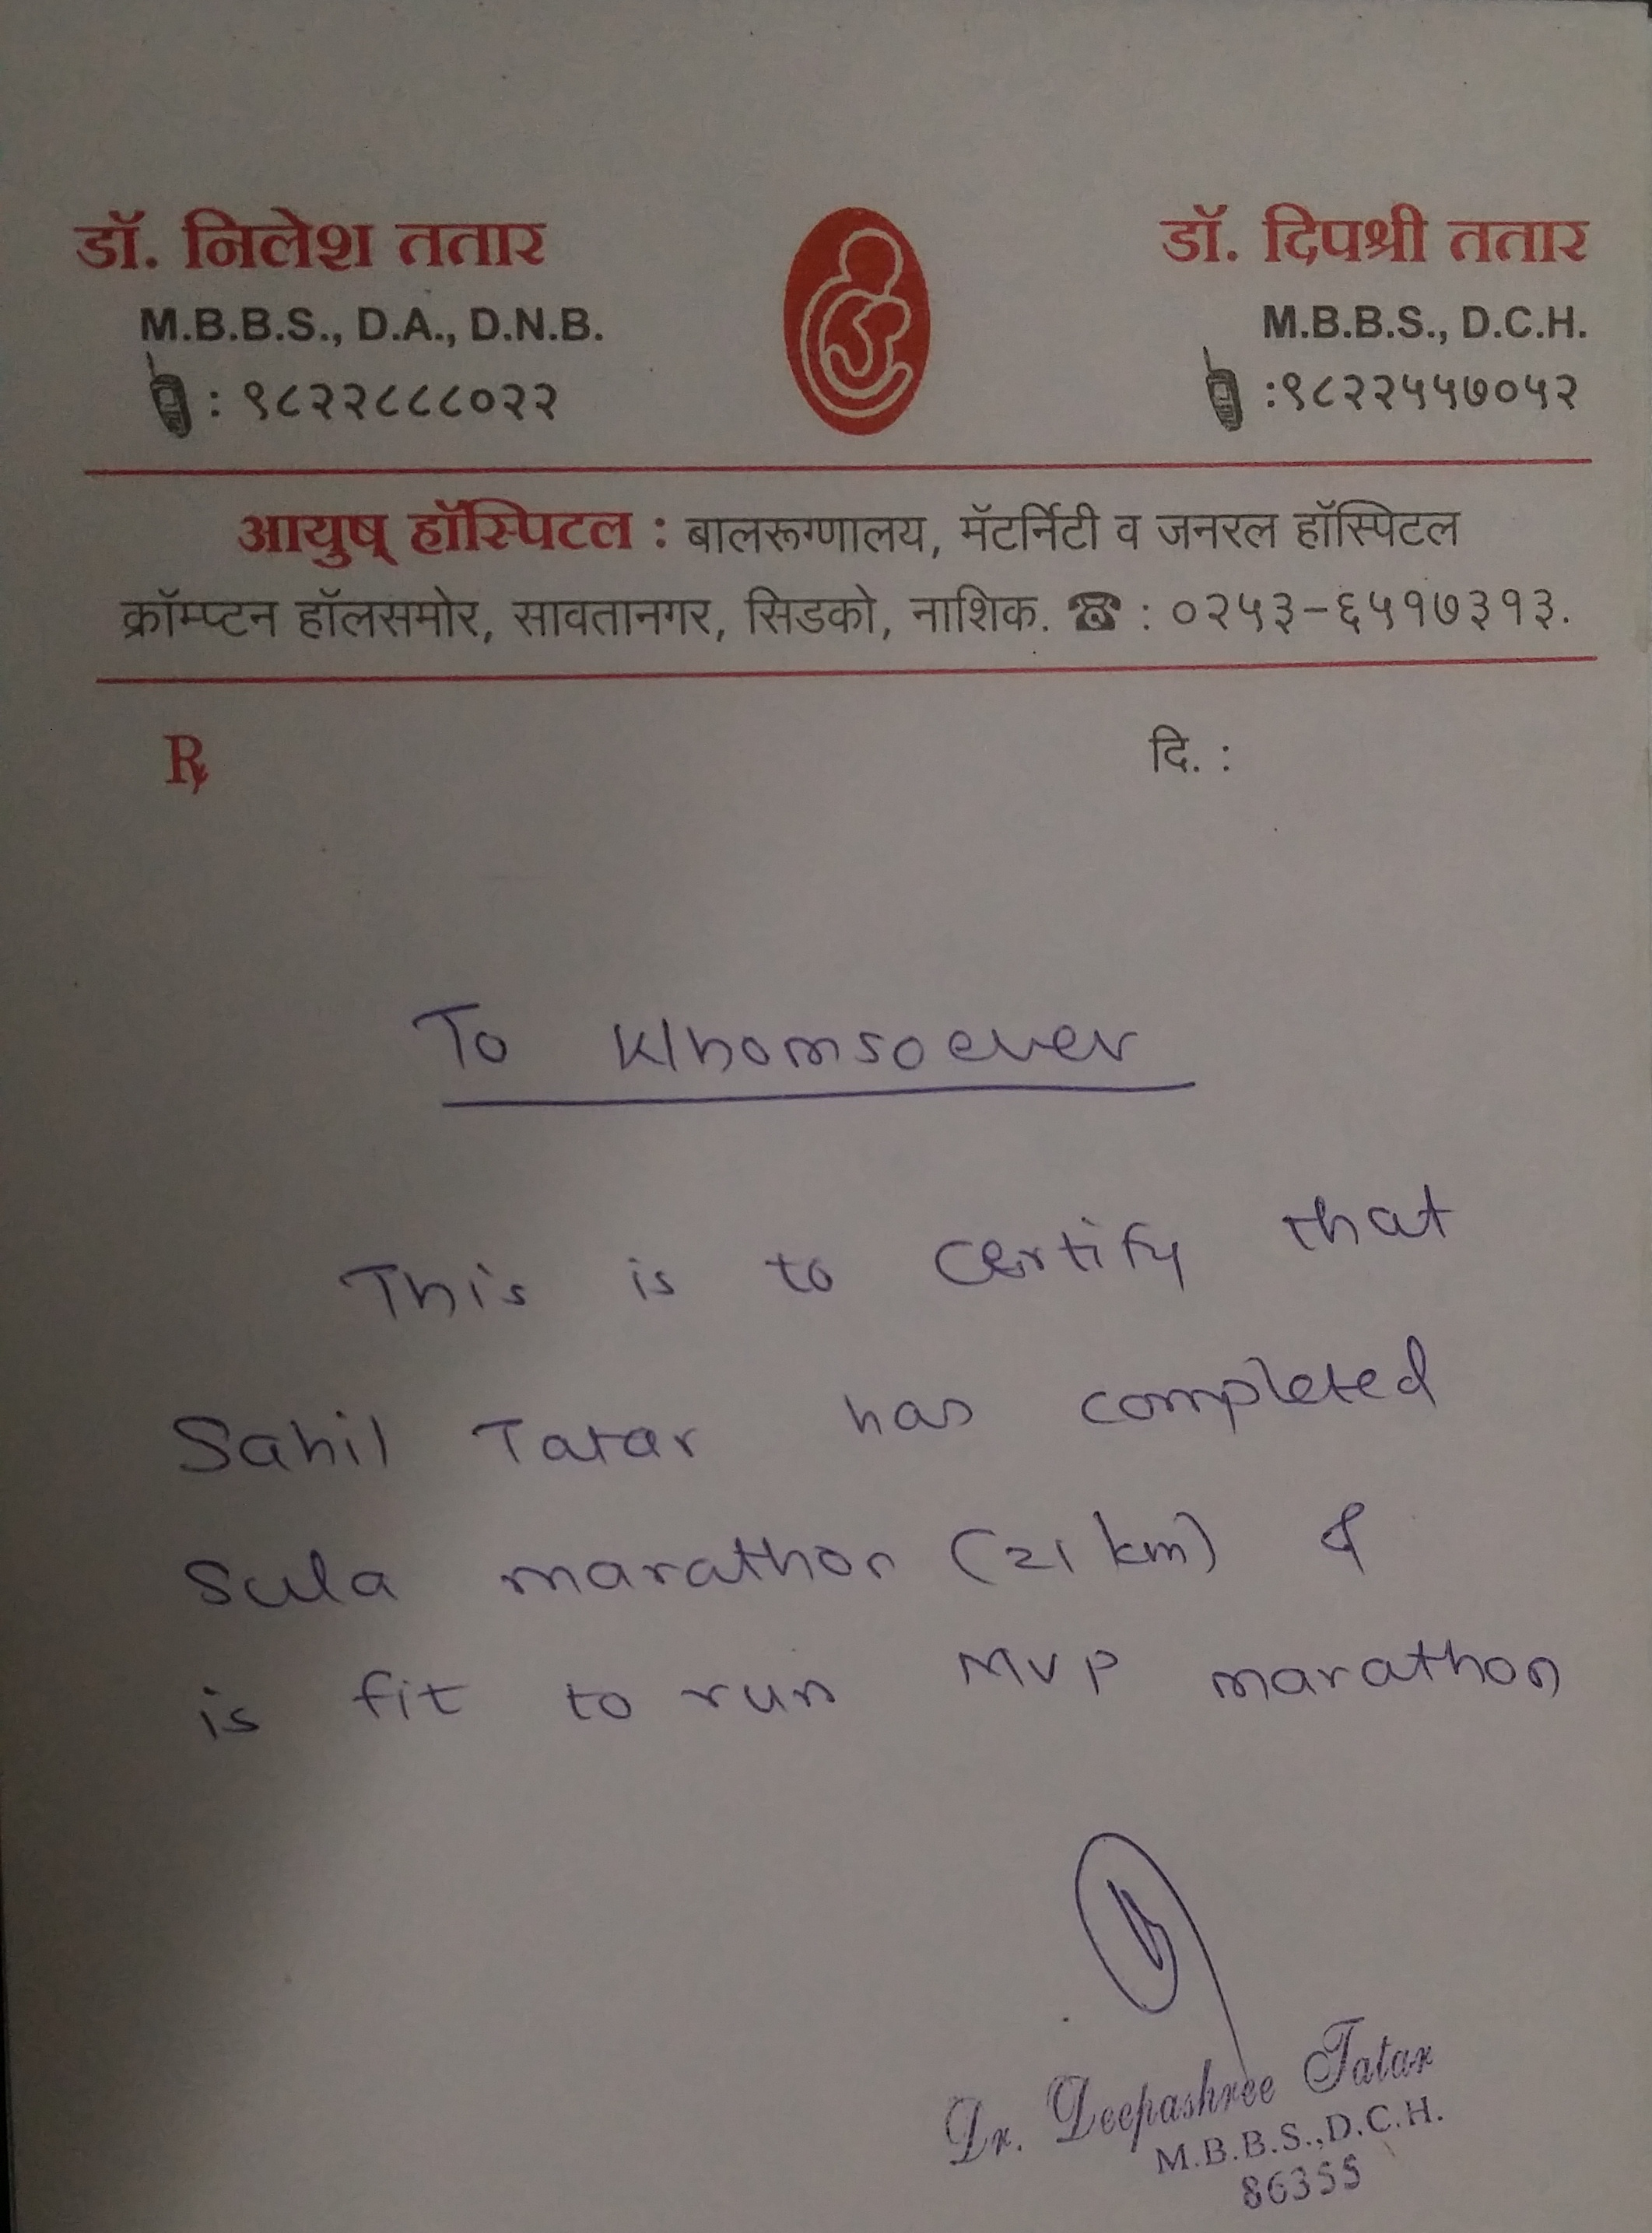 डॉ. निलेश ततार
M.B.B.S., D.A., D.N.B.
: ९८२२८८८०२२
डॉ. दिपश्री ततार
M.B.B.S., D.C.H.
:९८२२५५७०५२
आयुष् हॉस्पिटल : बालरूग्णालय, मॅटर्निटी व जनरल हॉस्पिटल
क्रॉम्प्टन हॉलसमोर, सावतानगर, सिडको, नाशिक. ☎ : ०२५३-६५१७३१३.
℞ दि. :
To Whomsoever
This is to certify that
Sahil Tatar has completed
Sula marathon (21 km) &
is fit to run MVP marathon
Dr. Deepashree Tatar
M.B.B.S.,D.C.H.
86355